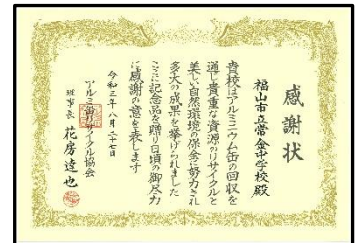 感謝状
福山市立常金中学校殿
貴校はアルミニウム缶の回収を
通じ貴重な資源のリサイクルと
美しい自然環境の保全に努力され
多大の成果を挙げられました
ここに記念品を贈り日頃の御尽力
に感謝の意を表します
令和三年八月二十七日
アルミ缶リサイクル協会
理事長 花房達也